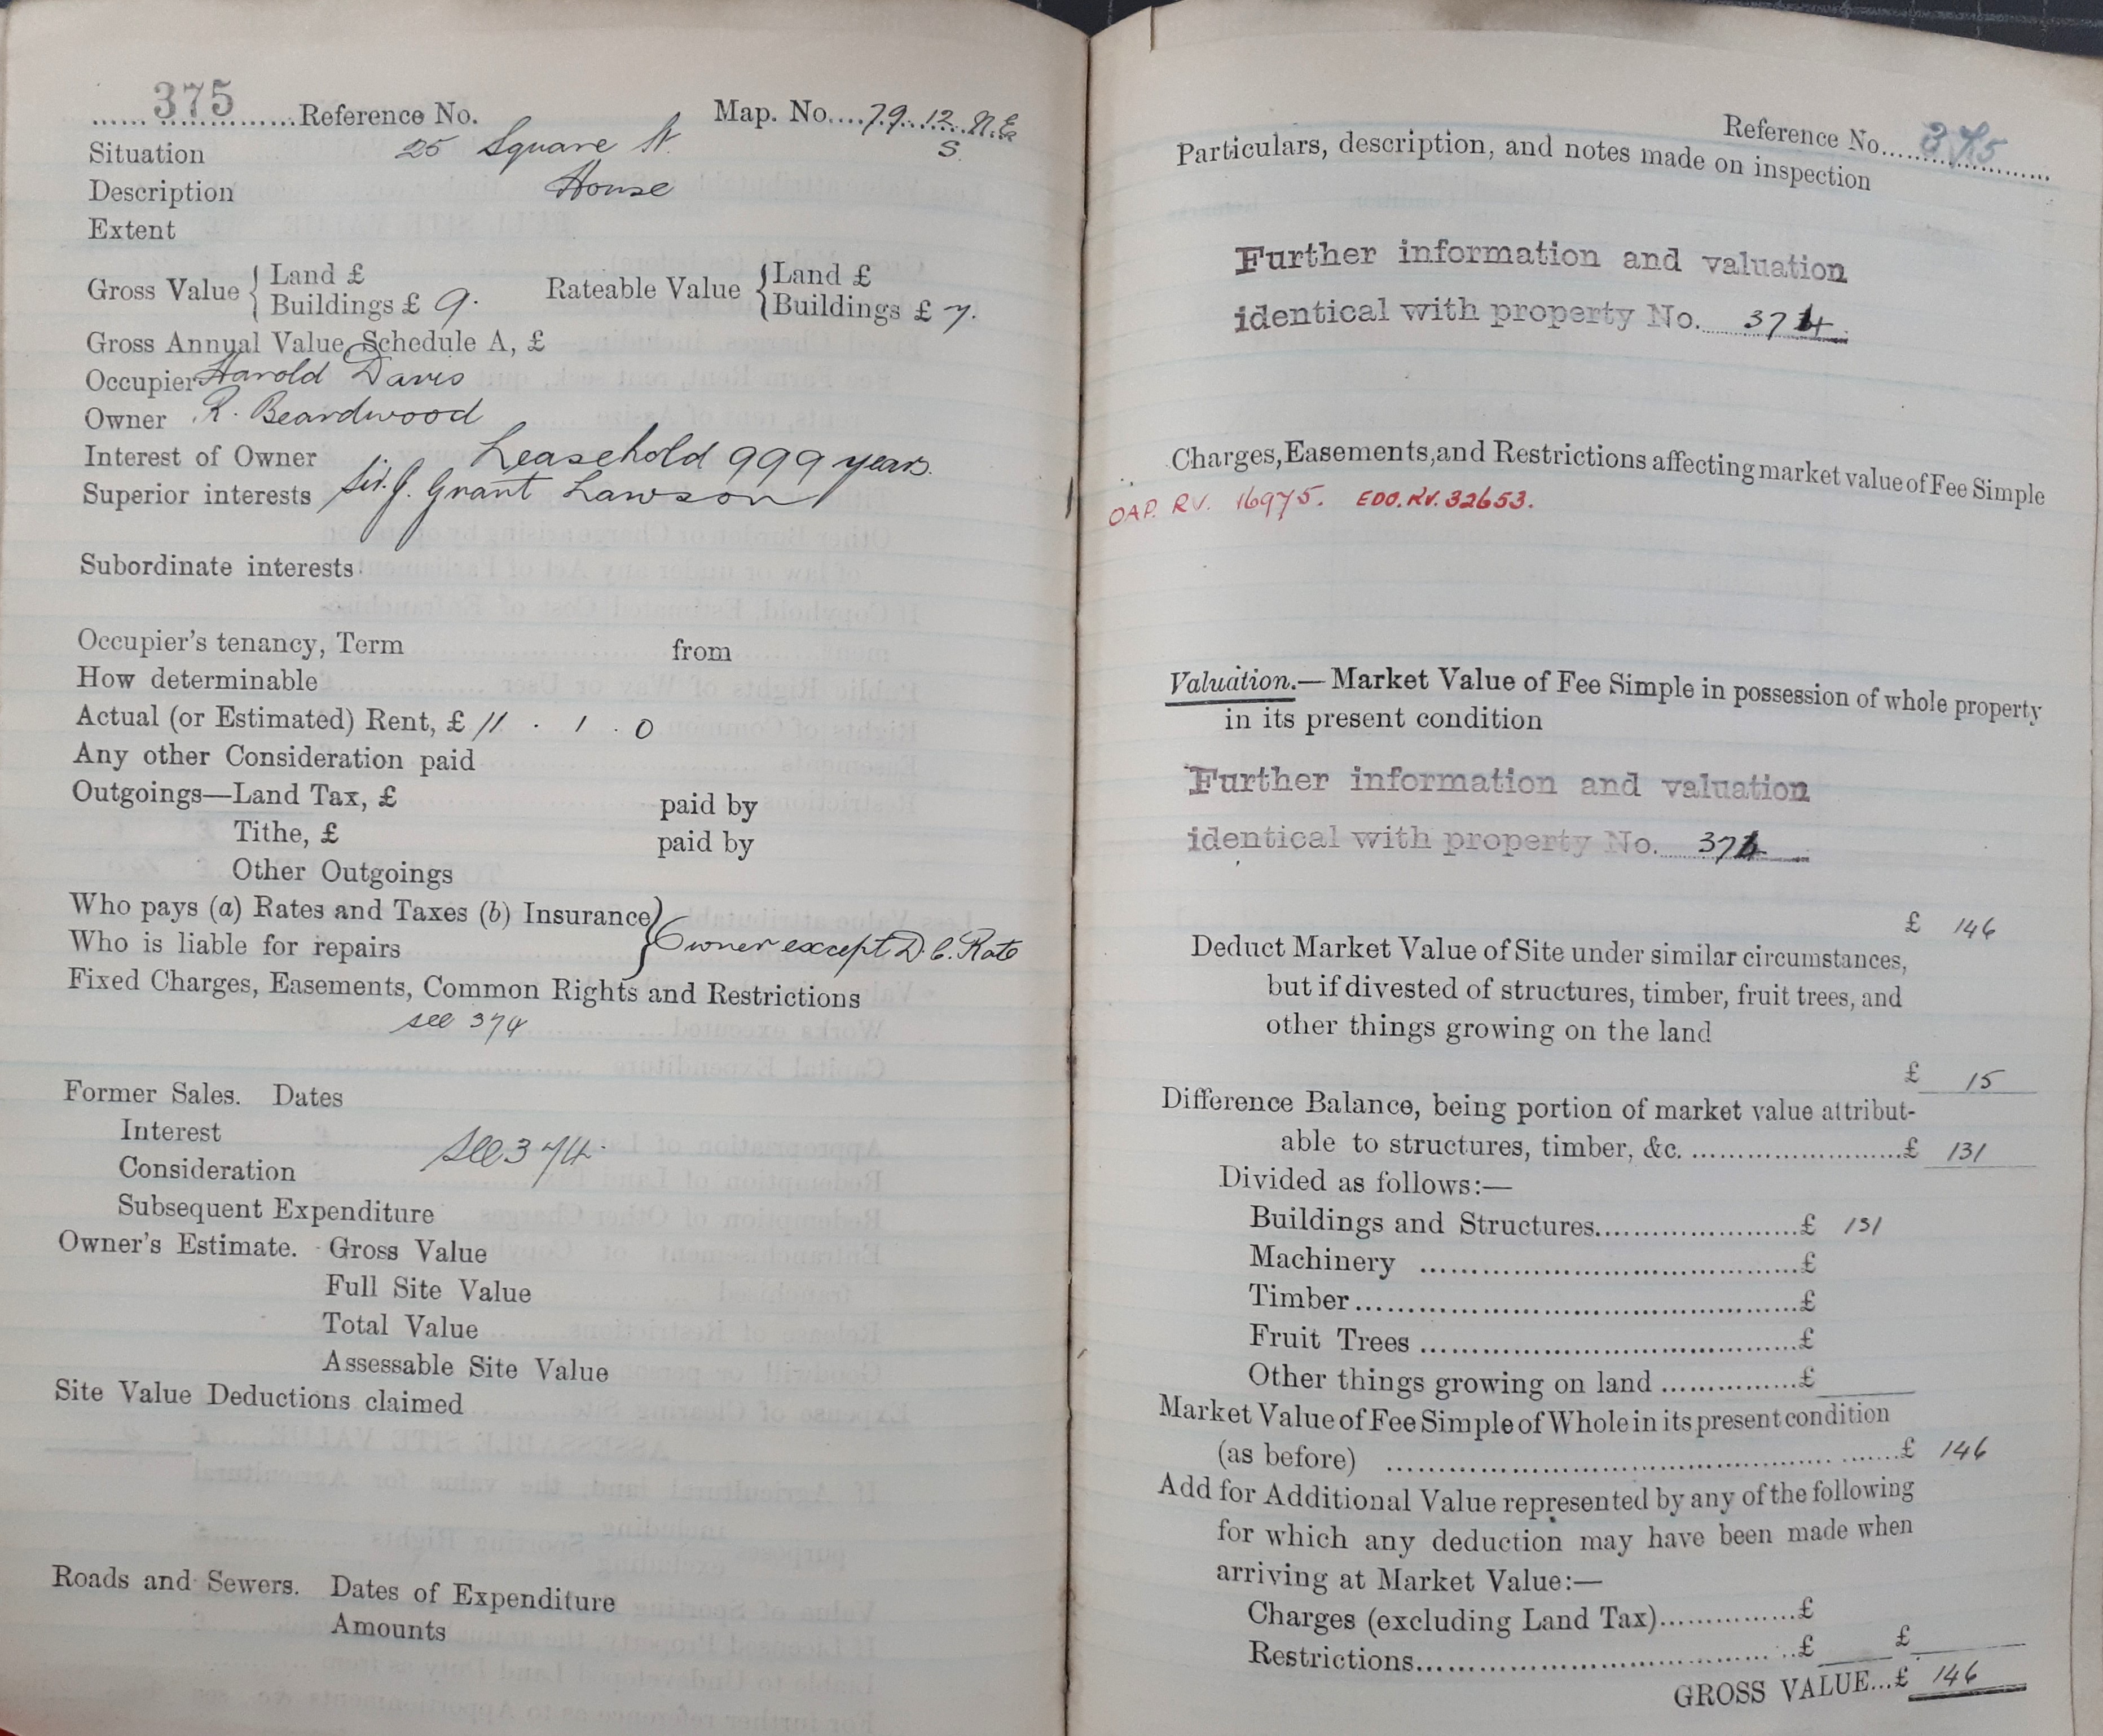 375 Reference No. Map. No. 79.12.N.E.
S.
Situation 25 Square St.
Description House
Extent
Gross Value { Land £ Rateable Value { Land £
Buildings £ 9. Buildings £ 7.
Gross Annual Value, Schedule A, £
Occupier Harold Davis
Owner R. Beardwood
Interest of Owner Leasehold 999 years.
Superior interests Sir. J. Grant Lawson
Subordinate interests
Occupier's tenancy, Term from
How determinable
Actual (or Estimated) Rent, £ 11 . 1 . 0
Any other Consideration paid
Outgoings—Land Tax, £ paid by
Tithe, £ paid by
Other Outgoings
Who pays (a) Rates and Taxes (b) Insurance }
Who is liable for repairs } Owner except D.C. Rate
Fixed Charges, Easements, Common Rights and Restrictions
see 374
Former Sales. Dates
Interest
see 374.
Consideration
Subsequent Expenditure
Owner's Estimate. Gross Value
Full Site Value
Total Value
Assessable Site Value
Site Value Deductions claimed
Roads and Sewers. Dates of Expenditure
Amounts
Reference No. 375
Particulars, description, and notes made on inspection
Further information and valuation
identical with property No. 374.
Charges, Easements, and Restrictions affecting market value of Fee Simple
OAP. RV. 16975. EDO. RV. 32653.
Valuation.— Market Value of Fee Simple in possession of whole property
in its present condition
Further information and valuation
identical with property No. 374
£ 146
Deduct Market Value of Site under similar circumstances,
but if divested of structures, timber, fruit trees, and
other things growing on the land
£ 15
Difference Balance, being portion of market value attribut-
able to structures, timber, &c. ........................£ 131
Divided as follows:—
Buildings and Structures......................£ 131
Machinery ......................................£
Timber.............................................£
Fruit Trees ......................................£
Other things growing on land ...............£
Market Value of Fee Simple of Whole in its present condition
(as before) ................................................£ 146
Add for Additional Value represented by any of the following
for which any deduction may have been made when
arriving at Market Value:—
Charges (excluding Land Tax)...............£
Restrictions......................................£ £
GROSS VALUE...£ 146